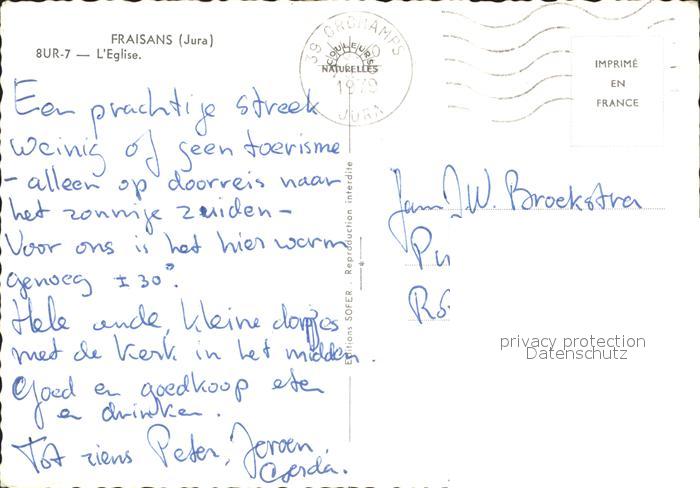 FRAISANS (Jura)
8UR-7 — L'Eglise.
39 ORCHAMPS
COULEURS
NATURELLES
1979
JURA
IMPRIMÉ
EN
FRANCE
Een prachtige streek
weinig of geen toerisme
- alleen op doorreis naar
het zonnige zuiden -
Voor ons is het hier warm
genoeg ± 30°.
Hele oude, kleine dorpjes
met de kerk in het midden.
Goed en goedkoop eten
en drinken.
Tot ziens Peter, Jeroen,
Gerda.
Editions SOFER - Reproduction interdite
Fam J.W. Broekstra
privacy protection
Datenschutz